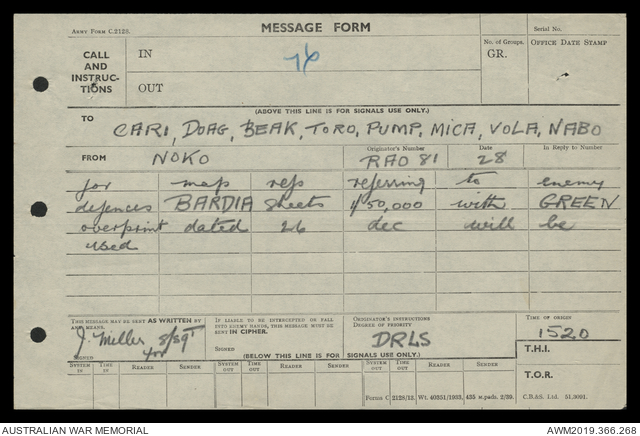 ARMY FORM C.2128.
MESSAGE FORM
Serial No.
CALL AND INSTRUC-TIONS
IN
76
No. of Groups. GR.
OFFICE DATE STAMP
OUT
(ABOVE THIS LINE IS FOR SIGNALS USE ONLY.)
TO
CARI, DOAG, BEAK, TORO, PUMP, MICA, VOLA, NABO
FROM NOKO
Originator's Number RAO 81
Date 28
In Reply to Number
for map refs referring to enemy
defences BARDIA sheets 1/50,000 with GREEN
overprint dated 26 dec will be
used
THIS MESSAGE MAY BE SENT AS WRITTEN BY ANY MEANS.
IF LIABLE TO BE INTERCEPTED OR FALL INTO ENEMY HANDS, THIS MESSAGE MUST BE SENT IN CIPHER.
ORIGINATOR'S INSTRUCTIONS DEGREE OF PRIORITY
TIME OF ORIGIN
J. Miller S/Sgt
for
SIGNED
SIGNED
DRLS
1520
(BELOW THIS LINE IS FOR SIGNALS USE ONLY.)
T.H.I.
SYSTEM IN
TIME IN
READER
SENDER
SYSTEM OUT
TIME OUT
READER
SENDER
SYSTEM OUT
TIME OUT
READER
SENDER
T.O.R.
Forms C 2128/13. Wt. 40351/1933. 435 m.pads. 2/39. C.B&S. Ltd. 51.3001.
AUSTRALIAN WAR MEMORIAL
AWM2019.366.268